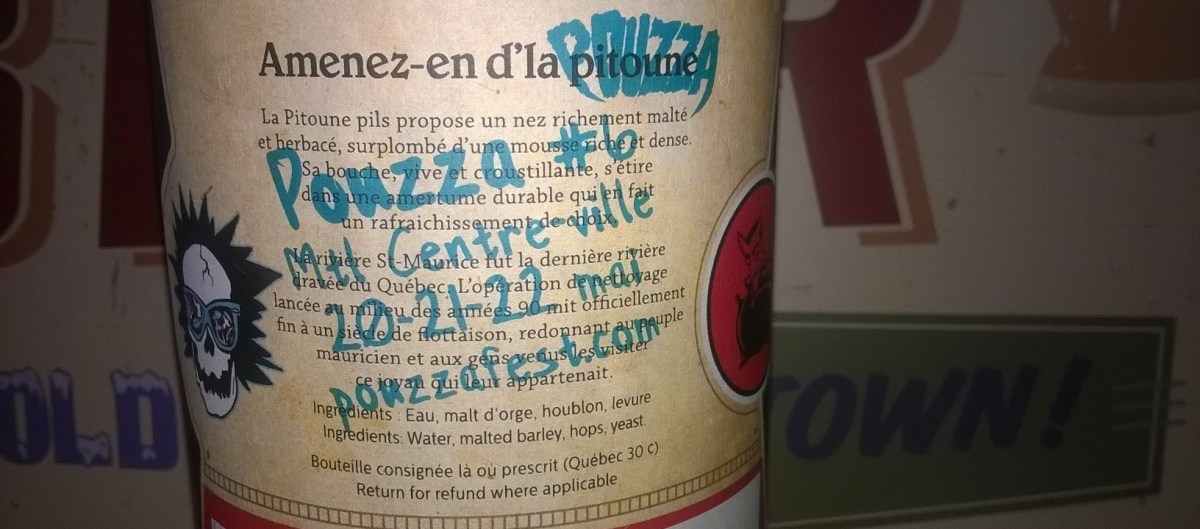 POUZZA
Amenez-en d'la pitoune
La Pitoune pils propose un nez richement malté
et herbacé, surplombé d'une mousse riche et dense.
Sa bouche, vive et croustillante, s'étire
dans une amertume durable qui en fait
un rafraichissement de choix.
Pouzza #6
Mtl Centre-ville
20-21-22 mai
pouzzafest.com
La rivière St-Maurice fut la dernière rivière
dravée du Québec. L'opération de nettoyage
lancée au milieu des années 90 mit officiellement
fin à un siècle de flottaison, redonnant au peuple
mauricien et aux gens venus les visiter
ce joyau qui leur appartenait.
Ingrédients : Eau, malt d'orge, houblon, levure
Ingredients: Water, malted barley, hops, yeast
Bouteille consignée là où prescrit (Québec 30 ¢)
Return for refund where applicable
OLD
TOWN!